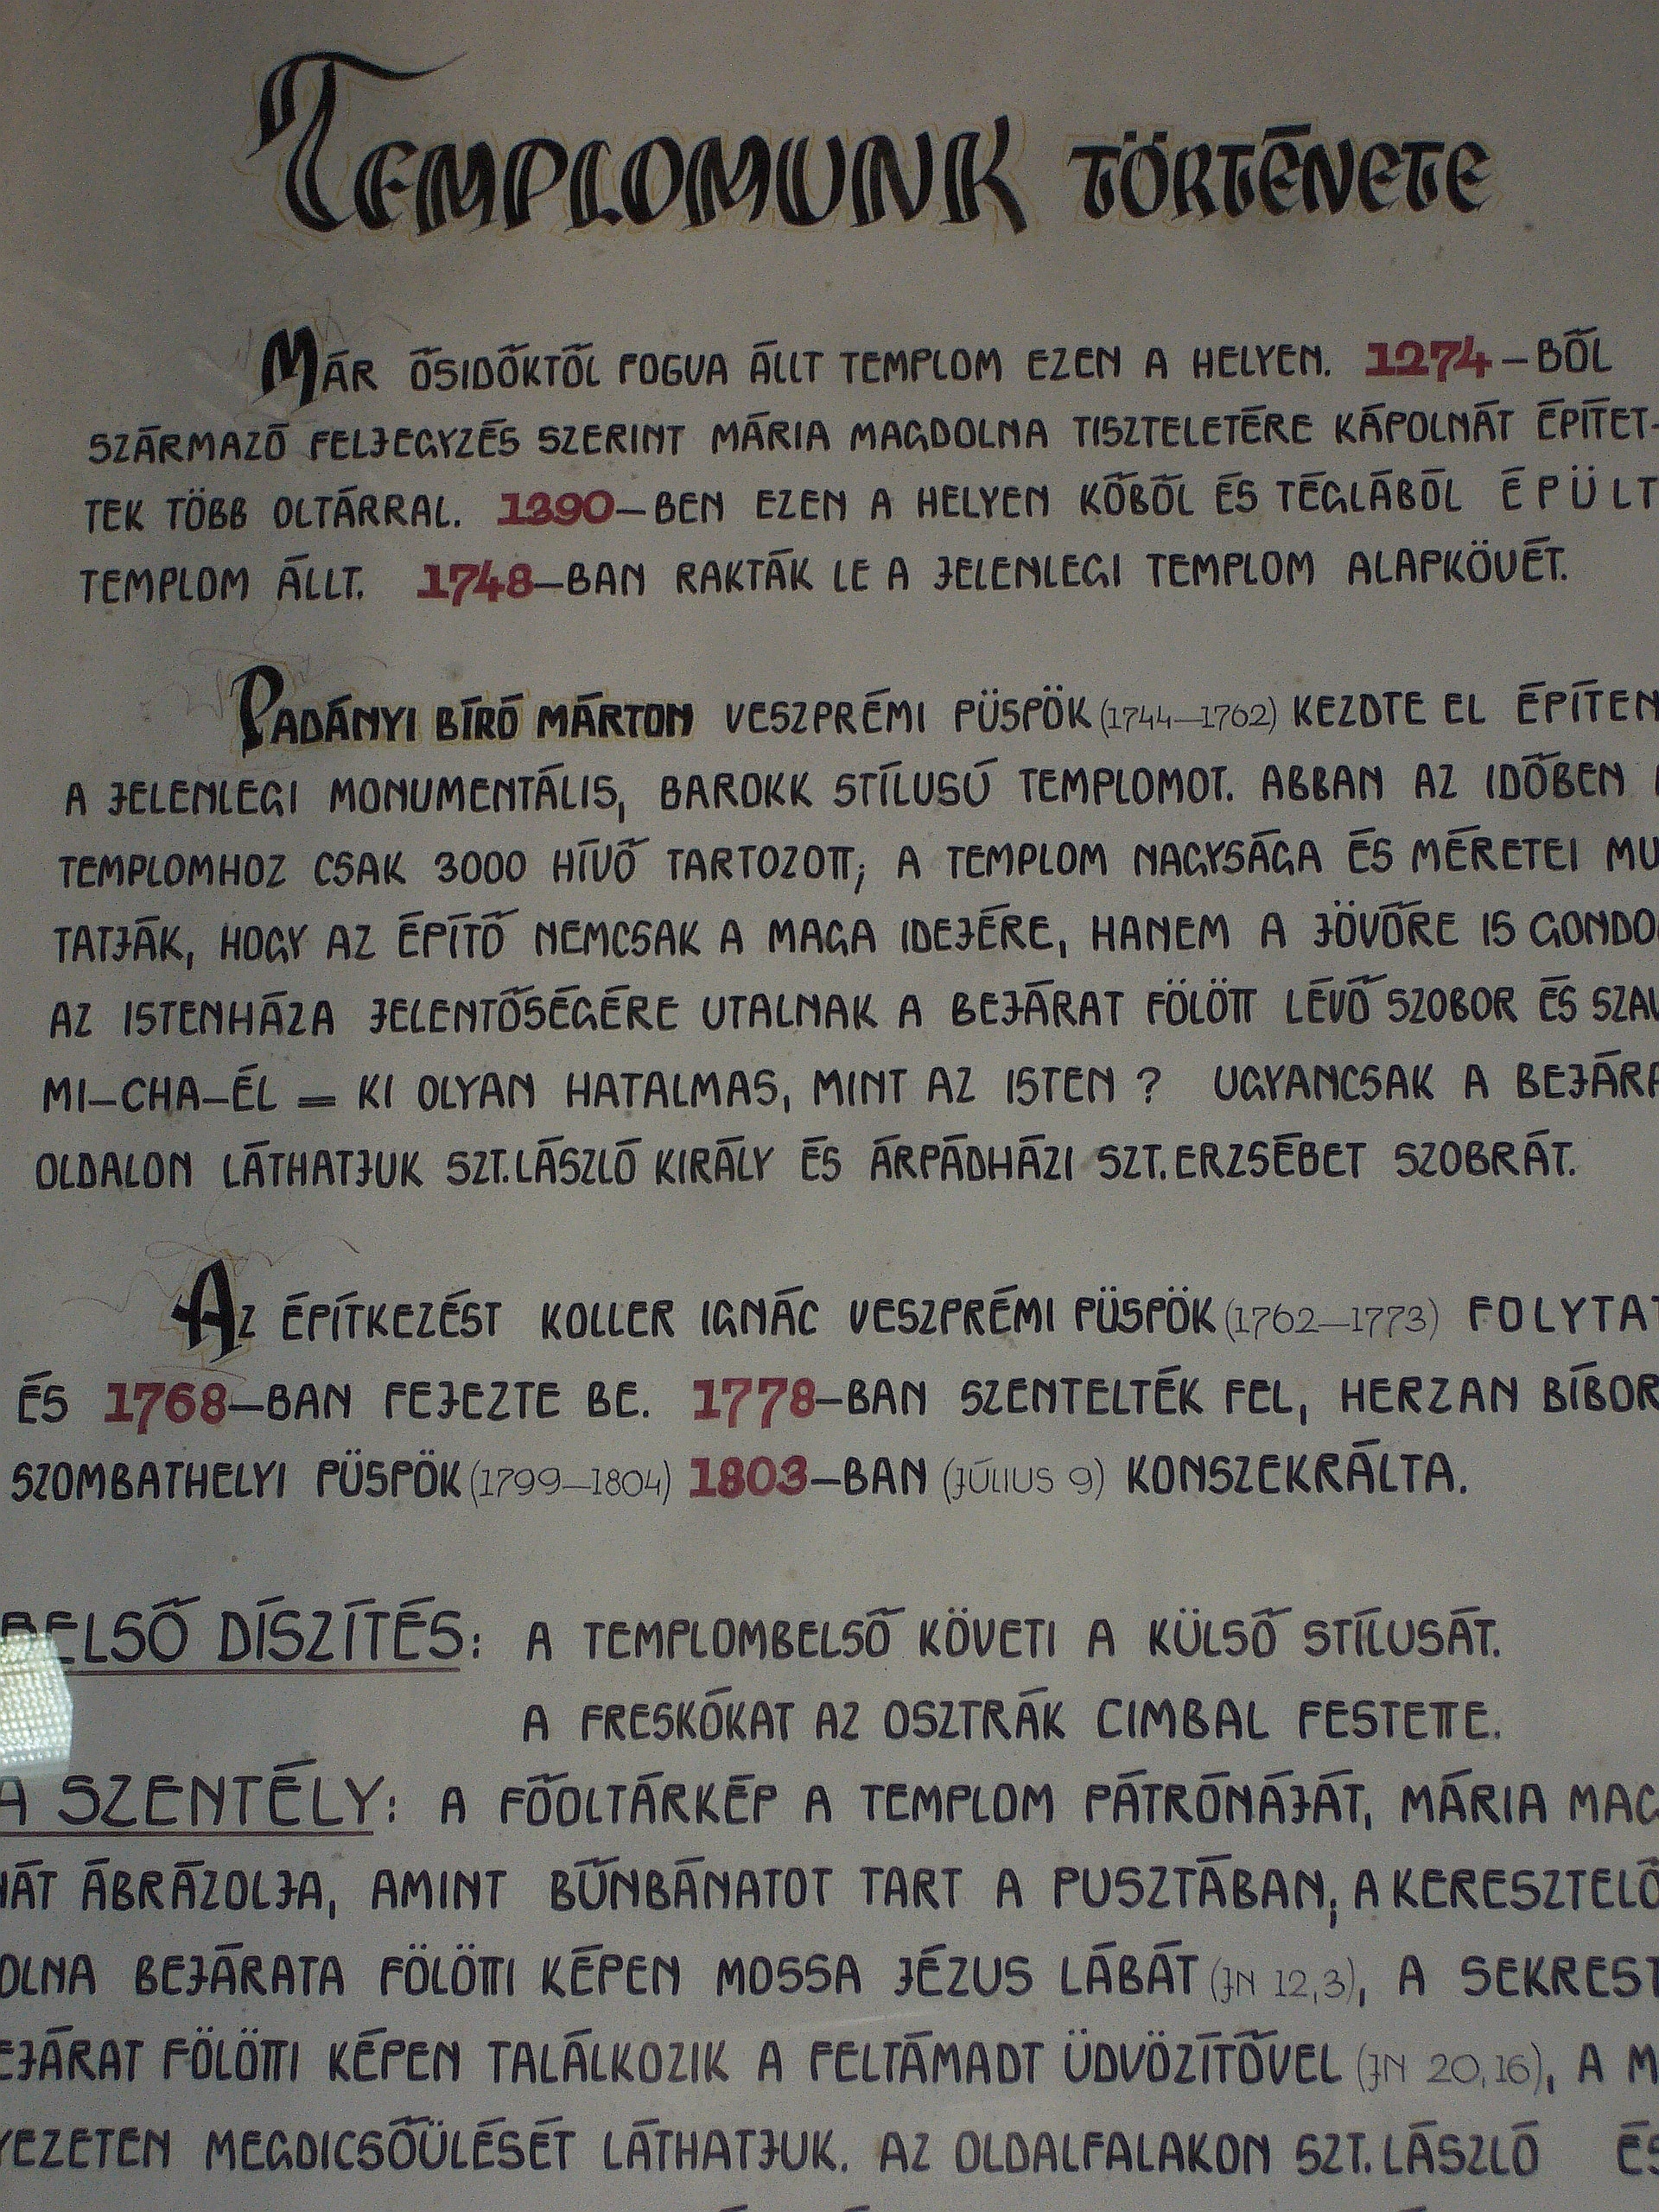 TEMPLOMUNK TÖRTÉNETE
MÁR ŐSIDŐKTŐL FOGVA ÁLLT TEMPLOM EZEN A HELYEN. 1274-BŐL
SZÁRMAZÓ FELJEGYZÉS SZERINT MÁRIA MAGDOLNA TISZTELETÉRE KÁPOLNÁT ÉPÍTET-
TEK TÖBB OLTÁRRAL. 1390-BEN EZEN A HELYEN KŐBŐL ÉS TÉGLÁBÓL ÉPÜLT
TEMPLOM ÁLLT. 1748-BAN RAKTÁK LE A JELENLEGI TEMPLOM ALAPKÖVÉT.
PADÁNYI BÍRÓ MÁRTON VESZPRÉMI PÜSPÖK (1744-1762) KEZDTE EL ÉPÍTEN
A JELENLEGI MONUMENTÁLIS, BAROKK STÍLUSÚ TEMPLOMOT. ABBAN AZ IDŐBEN
TEMPLOMHOZ CSAK 3000 HÍVŐ TARTOZOTT; A TEMPLOM NAGYSÁGA ÉS MÉRETEI MU
TATJÁK, HOGY AZ ÉPÍTŐ NEMCSAK A MAGA IDEJÉRE, HANEM A JÖVŐRE IS GONDO
AZ ISTENHÁZA JELENTŐSÉGÉRE UTALNAK A BEJÁRAT FÖLÖTT LÉVŐ SZOBOR ÉS SZAV
MI-CHA-ÉL = KI OLYAN HATALMAS, MINT AZ ISTEN ? UGYANCSAK A BEJÁRA
OLDALON LÁTHATJUK SZT. LÁSZLÓ KIRÁLY ÉS ÁRPÁDHÁZI SZT. ERZSÉBET SZOBRÁT.
AZ ÉPÍTKEZÉST KOLLER IGNÁC VESZPRÉMI PÜSPÖK (1762-1773) FOLYTAT
ÉS 1768-BAN FEJEZTE BE. 1778-BAN SZENTELTÉK FEL, HERZAN BÍBOR
SZOMBATHELYI PÜSPÖK (1799-1804) 1803-BAN (JÚLIUS 9) KONSZEKRÁLTA.
BELSŐ DÍSZÍTÉS: A TEMPLOMBELSŐ KÖVETI A KÜLSŐ STÍLUSÁT.
A FRESKÓKAT AZ OSZTRÁK CIMBAL FESTETTE.
A SZENTÉLY: A FŐOLTÁRKÉP A TEMPLOM PÁTRÓNÁJÁT, MÁRIA MAG
NÁT ÁBRÁZOLJA, AMINT BŰNBÁNATOT TART A PUSZTÁBAN, A KERESZTELŐ
OLNA BEJÁRATA FÖLÖTTI KÉPEN MOSSA JÉZUS LÁBÁT (JN 12,3), A SEKREST
EJÁRAT FÖLÖTTI KÉPEN TALÁLKOZIK A FELTÁMADT ÜDVÖZÍTŐVEL (JN 20,16), A M
YEZETEN MEGDICSŐÜLÉSÉT LÁTHATJUK. AZ OLDALFALAKON SZT. LÁSZLÓ ÉS